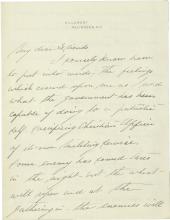 HILLCREST
My dear Friends
I scarcely know how
to put into words the feelings
which crowd upon me as I read
what the government has been
capable of doing to a patriotic
self sacrificing Christian Officer
of its own building service.
Some enemy has sowed tares
in the night but the wheat
will ripen and at the
gathering in the enemies will